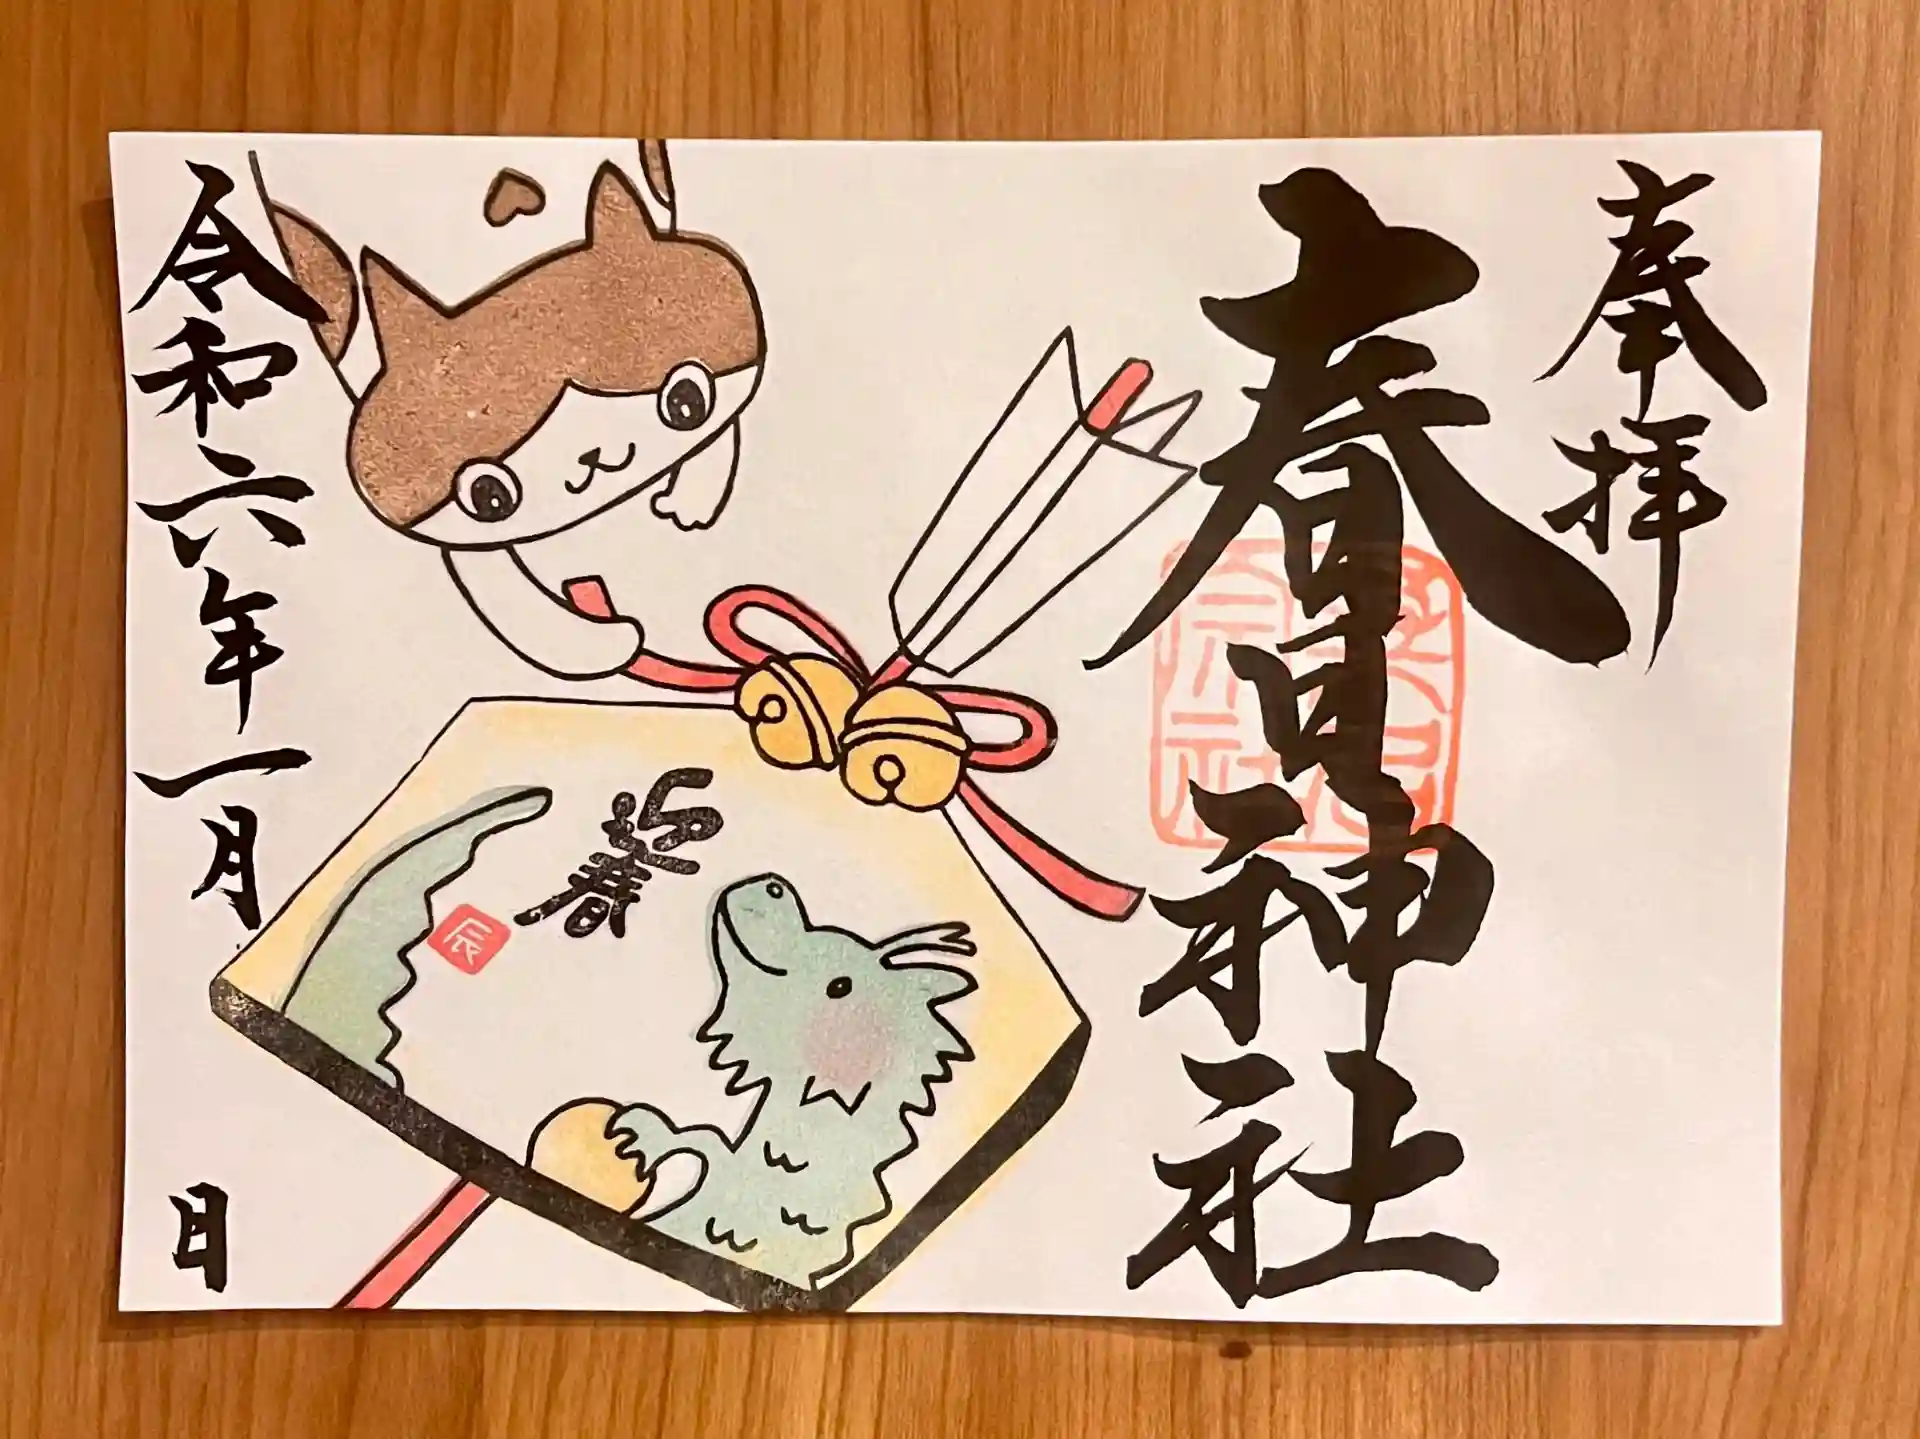 奉拝
春日神社
迎春
辰
令和六年一月
日